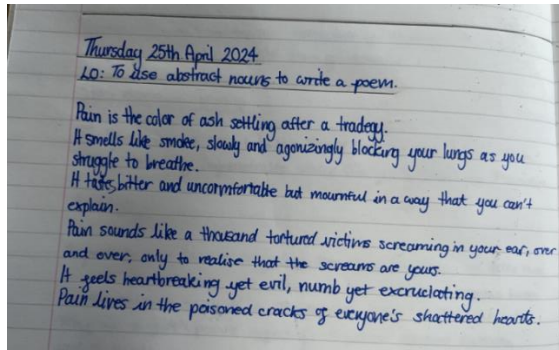 Thursday 25th April 2024
LO: To use abstract nouns to write a poem.
Pain is the color of ash settling after a tradegy.
It smells like smoke, slowly and agonizingly blocking your lungs as you
struggle to breathe.
It tastes bitter and uncomfortable but mournful in a way that you can't
explain.
Pain sounds like a thousand tortured victims screaming in your ear, over
and over, only to realise that the screams are yours.
It feels heartbreaking yet evil, numb yet excruciating.
Pain lives in the poisoned cracks of everyone's shattered hearts.